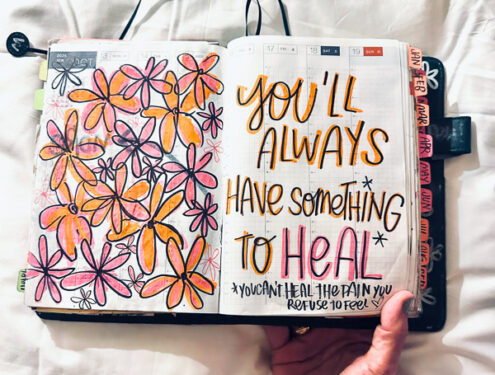 2024 OCT
17 FRI
18 SAT
19 SUN
YOU'LL
ALWAYS
HAVE SOMETHING*
TO HEAL*
*YOU CAN'T HEAL THE PAIN YOU
REFUSE TO FEEL
JAN
FEB
MAR
APR
MAY
JUN
JUL